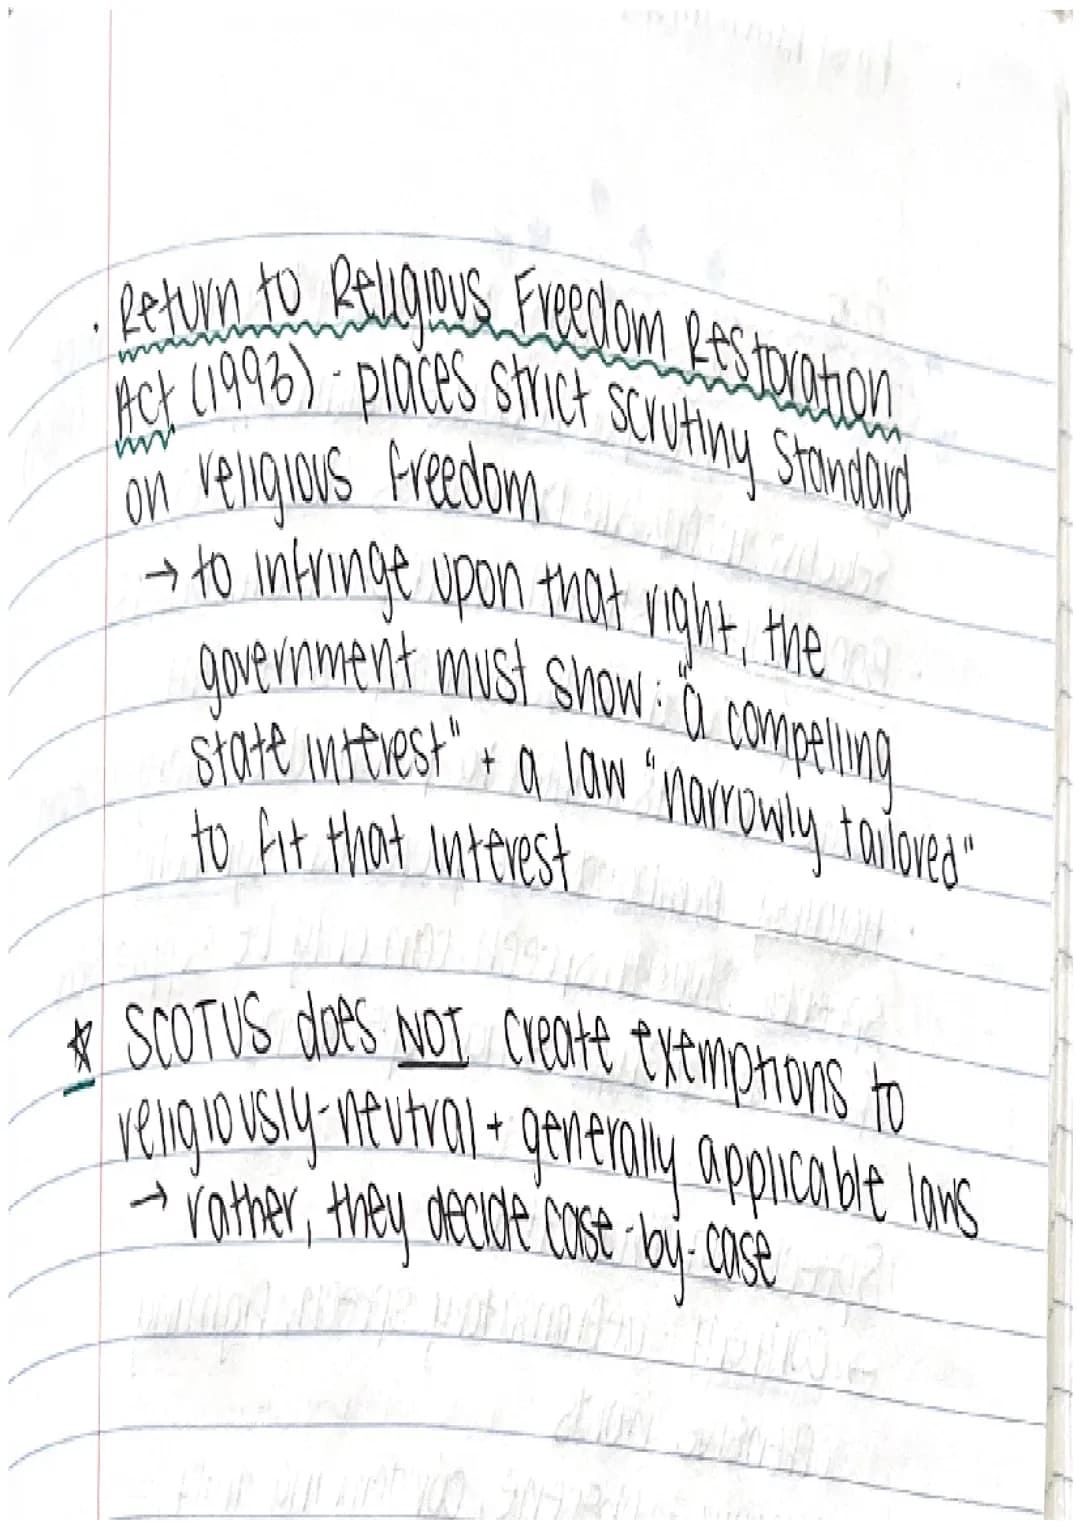 · Return to Religious Freedom Restoration
Act (1993) - places strict scrutiny standard
on religious freedom
→ to infringe upon that right, the
government must show: "a compelling
state interest" + a law "narrowly tailored"
to fit that interest
☆ SCOTUS does NOT create exemptions to
religiously-neutral + generally applicable laws
→ rather, they decide case-by-case